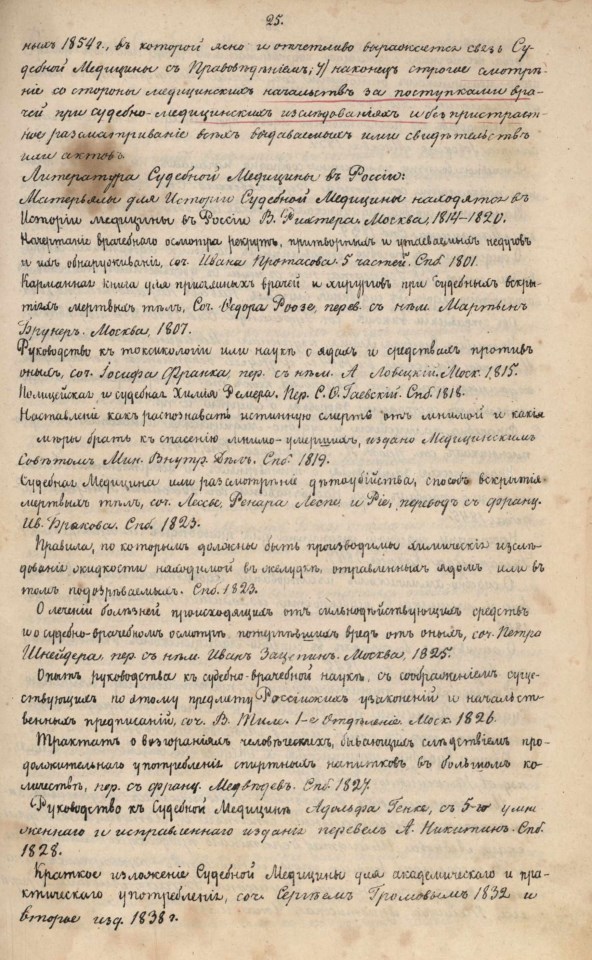 25.
ныхъ 1854 г., въ которой ясно и отчетливо выражается связь Су-
дебной Медицины съ Правовѣдѣніемъ; 4) наконецъ строгое смотрѣ-
ніе со стороны медицинскихъ начальствъ за поступками вра-
чей при судебно-медицинскихъ изслѣдованіяхъ и безпристраст-
ное разсматриваніе всѣхъ выдаваемыхъ ими свидѣтельствъ
или актовъ.
Литература Судебной Медицины въ Россіи:
Матерьялы для Исторіи Судебной Медицины находятся въ
Исторіи медицины въ Россіи В. Рихтера. Москва, 1814–1820.
Начертаніе врачебнаго осмотра рекрутъ, притворныхъ и утаеваемыхъ недуговъ
и ихъ обнаруживаніи, соч. Ивана Протасова. 5 частей. Спб. 1801.
Карманная книга для присяжныхъ врачей и хирурговъ при судебныхъ вскры-
тіяхъ мертвыхъ тѣлъ, Соч. Ѳедора Роозе, перев. съ нѣм. Мартынъ
Брунеръ. Москва, 1807.
Руководство къ токсикологіи или наукѣ о ядахъ и средствахъ противъ
оныхъ, соч. Іосифа Франка пер. съ нѣм. А Ловецкій. Моск. 1815.
Полицейская и судебная Химія Ремера. Пер. С. Ѳ. Гаевскій. Спб. 1818.
Наставленіе какъ распознавать истинную смерть отъ мнимой и какія
мѣры брать къ спасенію мнимо-умершихъ, издано Медицинскимъ
Совѣтомъ Мин. Внутр. Дѣлъ. Спб. 1819.
Судебная Медицина или разсмотрѣніе дѣтоубійства, способъ вскрытія
мертвыхъ тѣлъ, соч. Лесье, Ренара Леспе и Ріе, переводъ съ франц.
Ив. Бракова. Спб. 1823.
Правила, по которымъ должны быть производимы химическія изслѣ-
дованіе жидкости находимой въ желудкѣ, отравленныхъ ядомъ или въ
томъ подозрѣваемыхъ. Спб. 1823.
О леченіи болѣзней происходящихъ отъ сильнодѣйствующихъ средствъ
и о судебно-врачебномъ осмотрѣ потерпѣвшихъ вредъ отъ оныхъ, соч. Петра
Шнейдера пер. съ нѣм. Иванъ Зацепинъ. Москва, 1825.
Опытъ руководства къ судебно-врачебной наукѣ, съ соображеніемъ суще-
ствующихъ по этому предмету Россійскихъ узаконеній и начальст-
венныхъ предписаній, соч. В. Тиле. 1-е Отдѣленіе. Моск. 1826.
Трактатъ о возгораніяхъ человѣческихъ, бывающихъ слѣдствіемъ про-
должительнаго употребленія спиртныхъ напитковъ въ большомъ ко-
личествѣ, пер. съ франц. Медвѣдевъ. Спб. 1827.
Руководство къ Судебной Медицинѣ Адольфа Генке, съ 5-го умно
женнаго и исправленнаго изданія перевелъ А. Никитинъ. Спб.
1828.
Краткое изложеніе Судебной Медицины для академическаго и пра-
ктическаго употребленія, соч. Сергѣемъ Громовымъ 1832 и
второе изд. 1838 г.